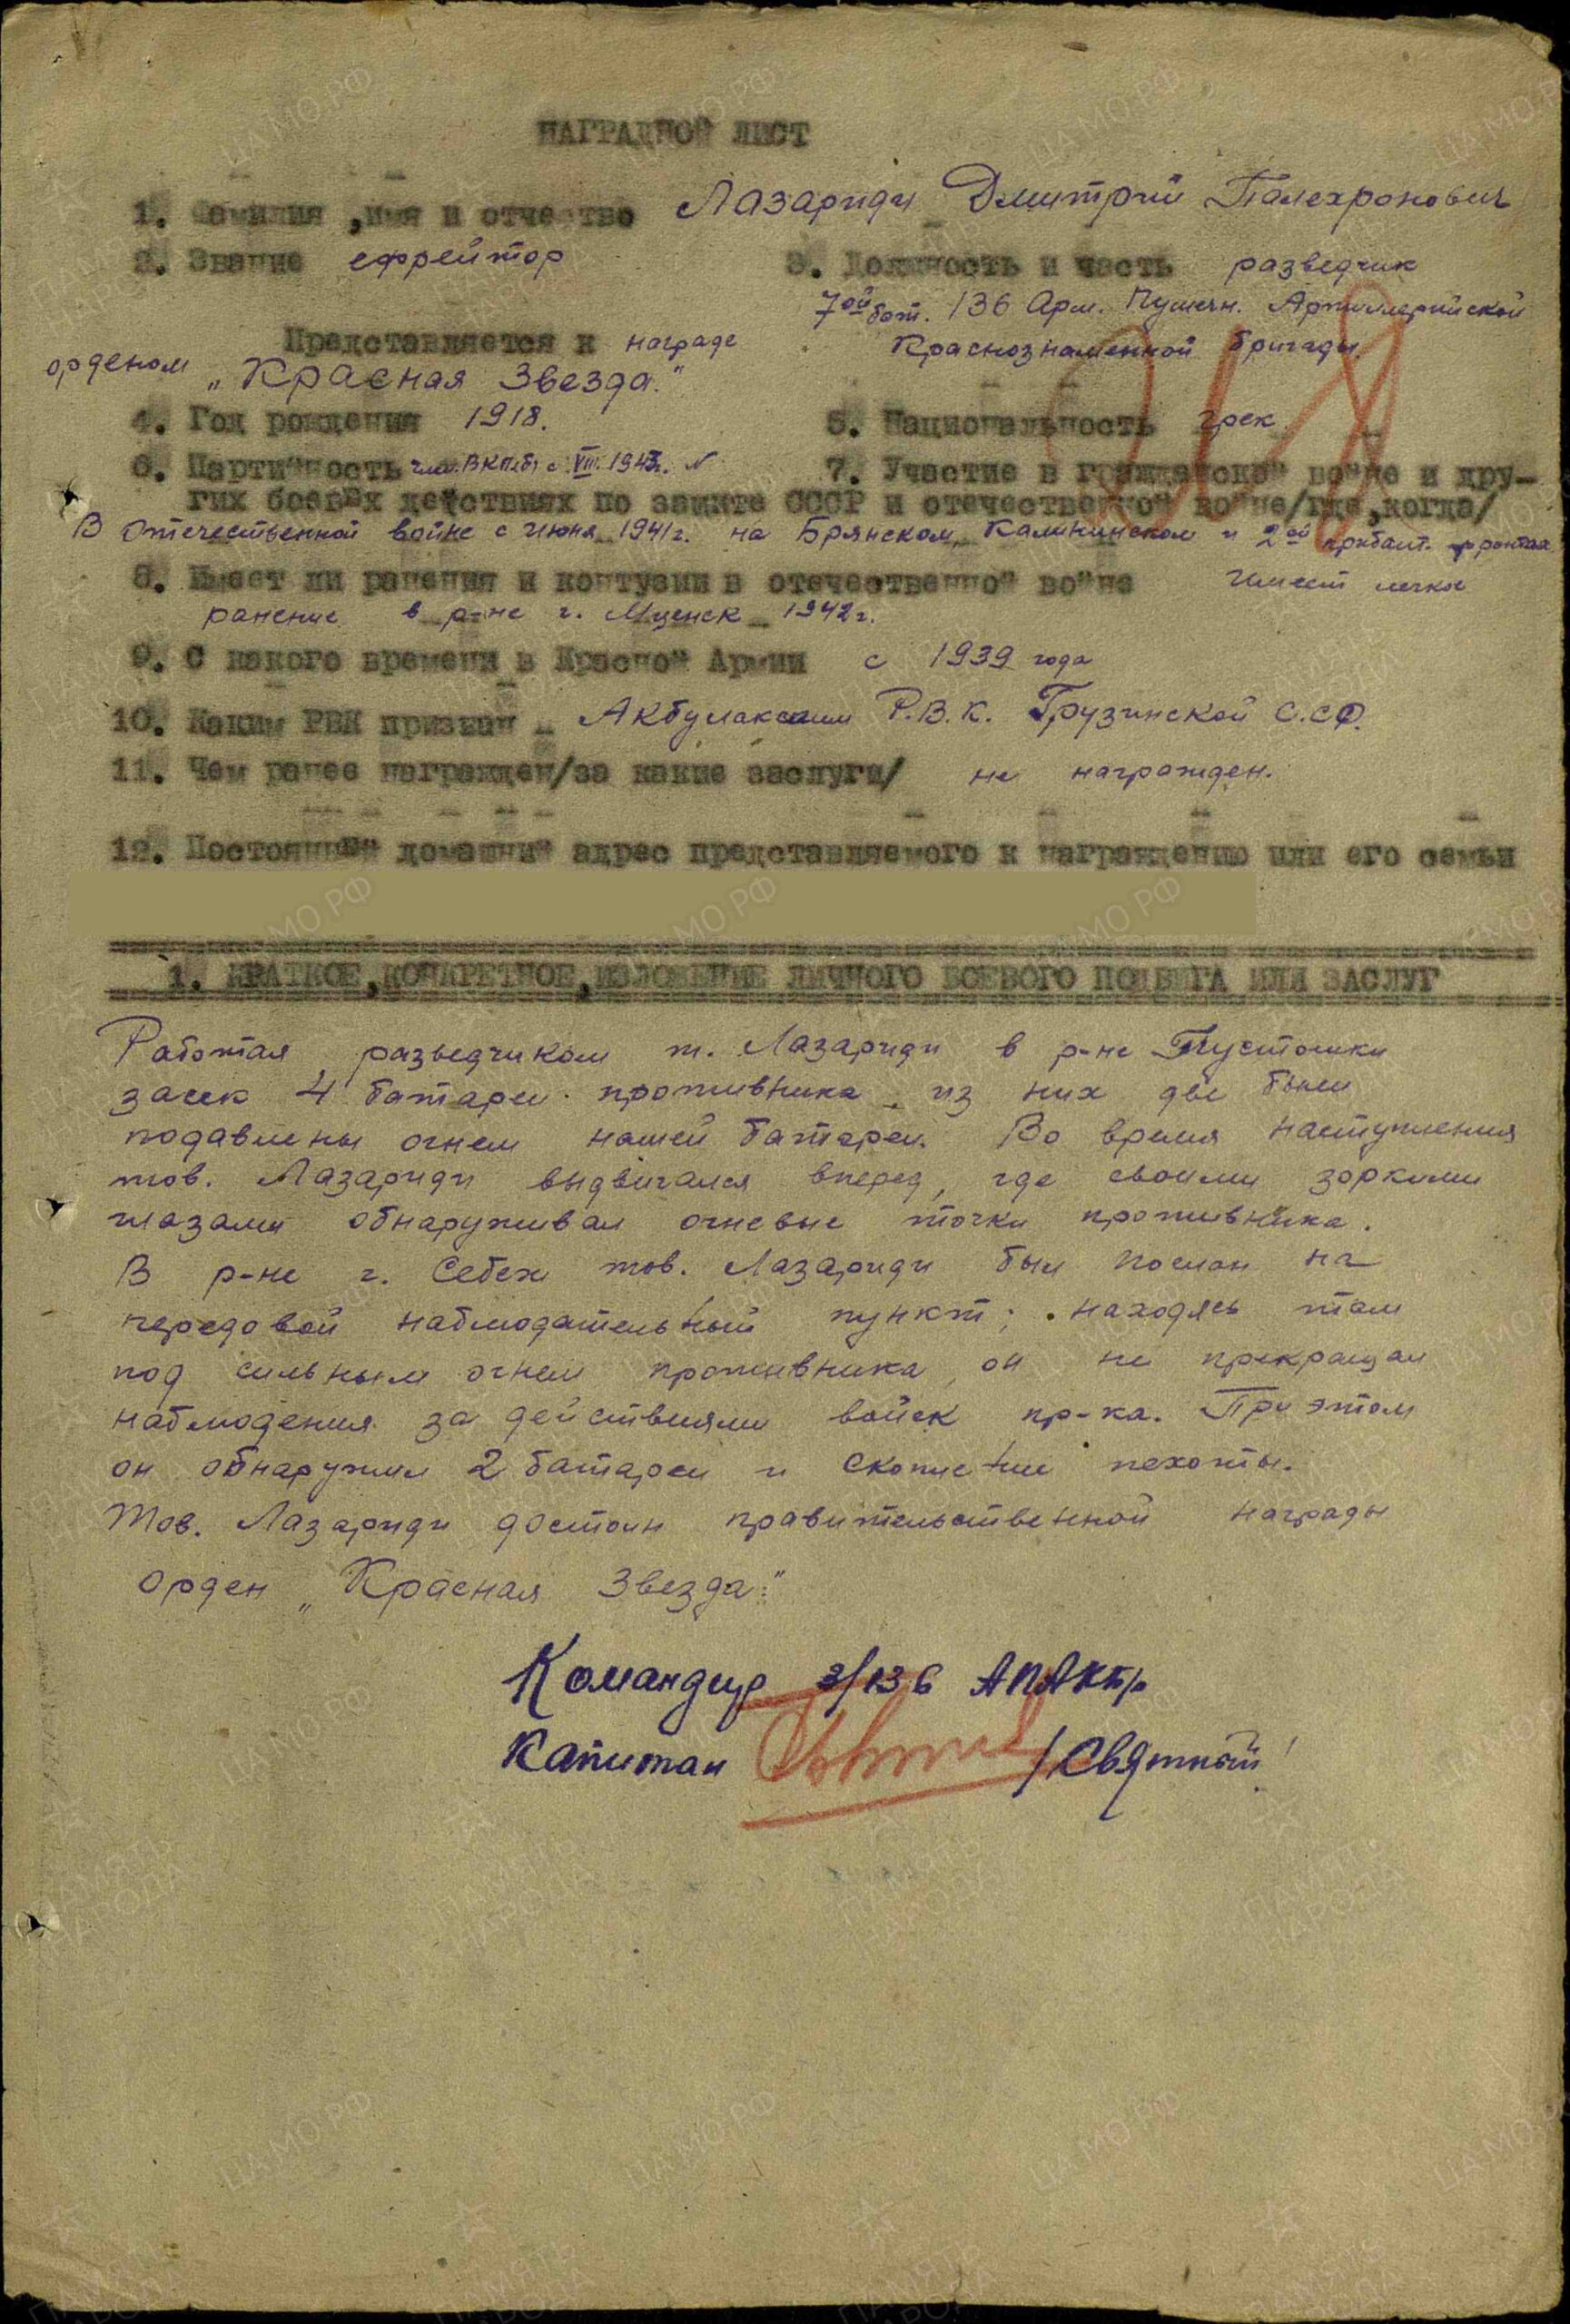 НАГРАДНОЙ ЛИСТ
1. Фамилия ,имя и отчество Лазариди Дмитрий Палехронович
2. Звание ефрейтор 3. Должность и часть разведчик
7ой бат. 136 Арм. Пушечн. Артиллерийской
Краснознаменной бригады.
Представляется к награде
орденом „Красная Звезда."
4. Год рождения 1918. 5. Национальность грек
6. Партийность член ВКП(б) с VIII. 1943г. 7. Участие в гражданской войне и дру-
гих боевых действиях по защите СССР и отечественной войне/где,когда/
В Отечественной войне с июня 1941г. на Брянском, Калининском и 2ой прибалт. фронтах
8. Имеет ли ранения и контузии в отечественной войне Имеет легкое
ранение в р-не г. Мценск 1942г.
9. С какого времени в Красной Армии с 1939 года
10. Каким РВК призван Акбулакским Р.В.К. Грузинской С.С.Р.
11. Чем ранее награжден/за какие заслуги/ не награжден.
12. Постоянный домашний адрес представляемого к награждению или его семьи
1. КРАТКОЕ,КОНКРЕТНОЕ,ИЗЛОЖЕНИЕ ЛИЧНОГО БОЕВОГО ПОДВИГА ИЛИ ЗАСЛУГ
Работая разведчиком т. Лазариди в р-не Пустошки
засек 4 батареи противника из них две были
подавлены огнем нашей батареи. Во время наступления
тов. Лазариди выдвигался вперед, где своими зоркими
глазами обнаруживал огневые точки противника.
В р-не г. Себеж тов. Лазариди был послан на
передовой наблюдательный пункт; находясь там
под сильным огнем противника, он не прекращал
наблюдения за действиями войск пр-ка. При этом
он обнаружил 2 батареи и скопление пехоты.
Тов. Лазариди достоин правительственной награды
орден „Красная Звезда."
Командир 3/136 АПАКБр
Капитан /Святный/